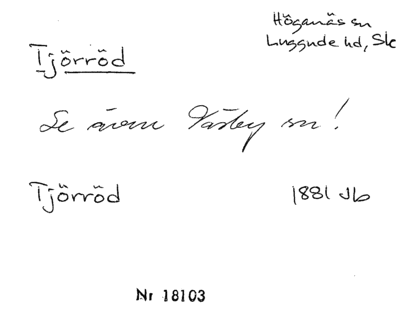 Höganäs sn
Luggude hd, Sk
Tjörröd
Se även Väsby sn!
Tjörröd 1881 Jb
Nr 18103